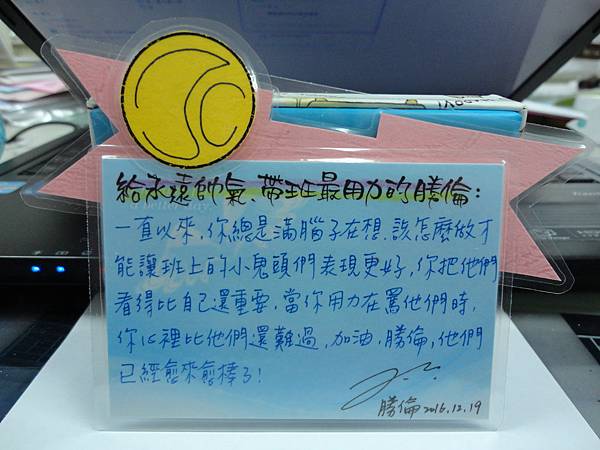 給永遠帥氣、帶班最用力的勝倫：
一直以來，你總是滿腦子在想，該怎麼做才
能讓班上的小鬼頭們表現更好，你把他們
看得比自己還重要，當你用力在罵他們時，
你心裡比他們還難過，加油，勝倫，他們
已經愈來愈棒了！
勝倫 2016.12.19